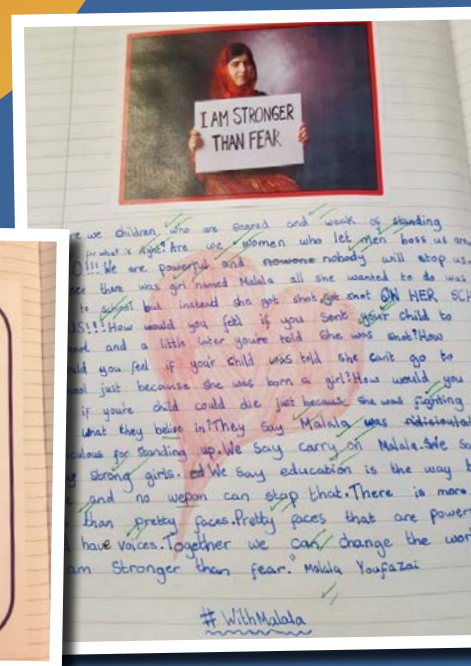 I AM STRONGER
THAN FEAR
we children who are scared and weak of standing
for what is right? Are we women who let men boss us
!!! We are powerful and nowone nobody will stop us.
there was girl named Malala all she wanted to do was
to school but instead she got shot, got shot ON HER
US!!! How would you feel if you sent your child to
and a little later youre told she was shot? How
you feel if your child was told she cant go to
just because she was born a girl? How would you
if you're child could die just because she was fighting
what they belive in? They say Malala was
for standing up. We say carry on Malala. We
strong girls. We say education is the way
and no wepon can stop that. There is more
than pretty faces. Pretty faces that are
have voices. Together we can change the
am Stronger than fear." Malala Youfazai
# WithMalala